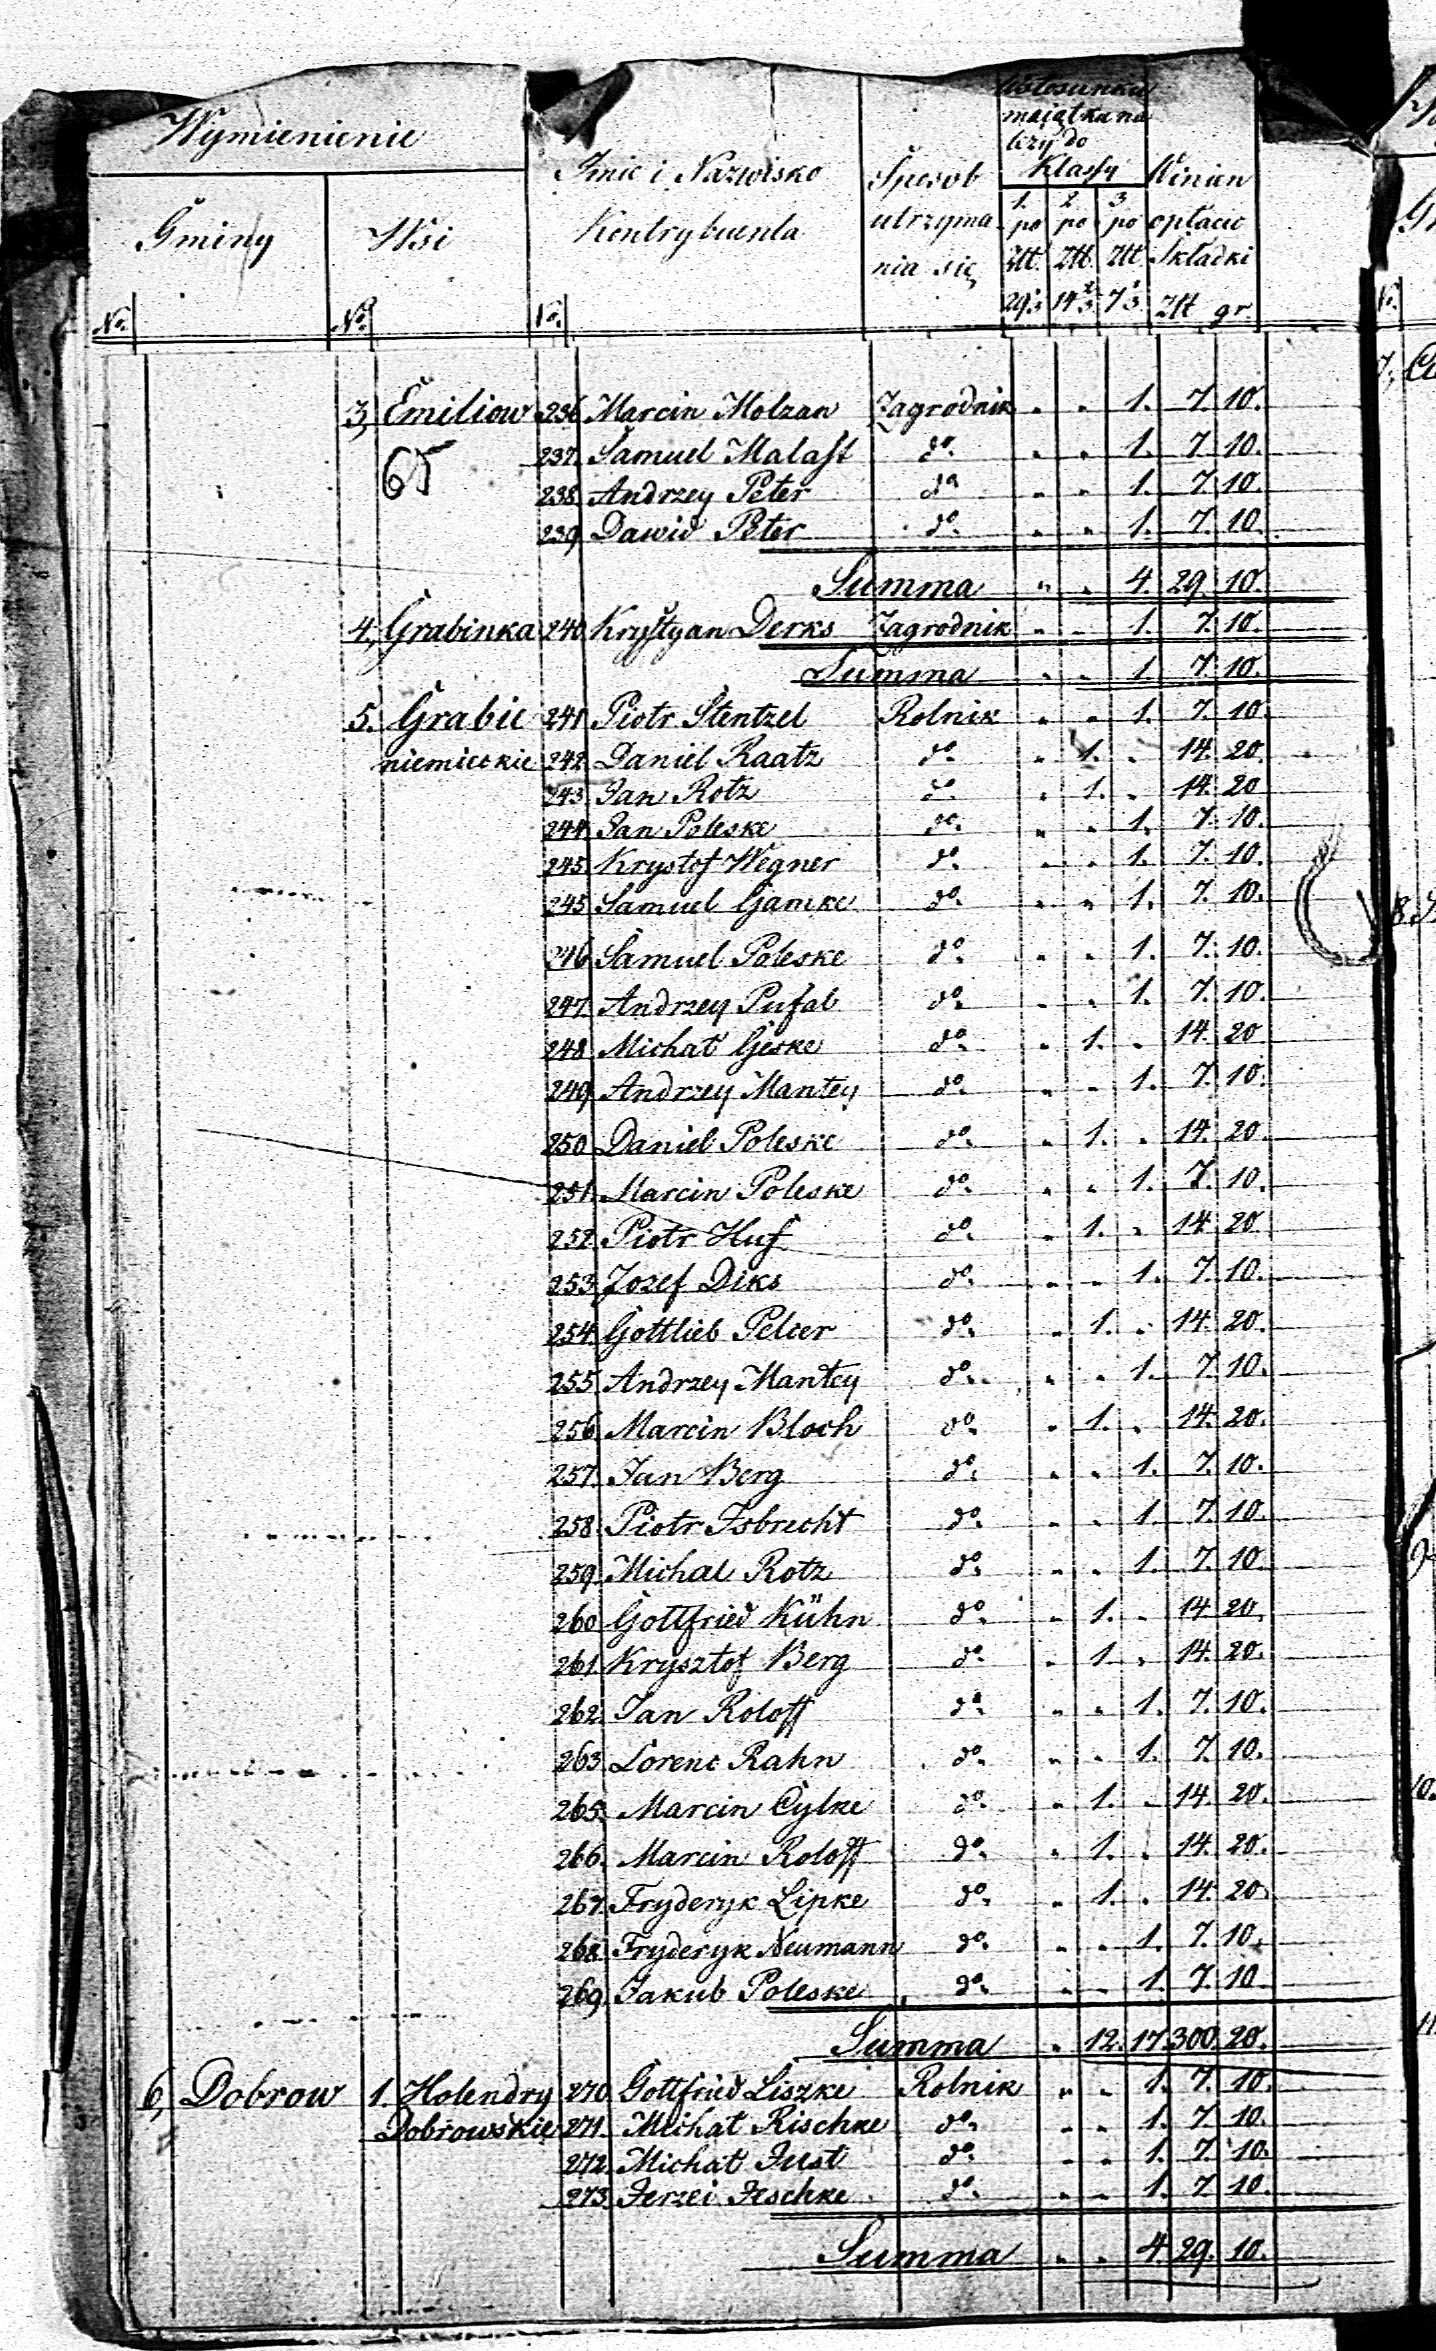 Wymienienie
Gminy
Wsi
Imie i Nazwisko
Kontrybuenta
Sposob
utrzyma
nia się
Wstosunku
maiątku na
leży do
Klassy
1. 2. 3.
po po po
Złt. Złt. Złt.
29⅓ 14⅔ 7⅓
Winien
opłacić
Składki
Złt gr.
No. No. No.
3, Emiliow 236 Marcin Molzan Zagrodnik " " 1. 7. 10.
65
237. Samuel Malast do. " " 1. 7. 10.
238. Andrzey Peter do " " 1. 7. 10.
239, Dawid Peter do. " " 1. 7. 10.
Summa " " 4. 29. 10.
4, Grabinka 240 Krystyan Derks Zagrodnik " " 1. 7. 10.
Summa " " 1. 7. 10.
5. Grabie 241 Piotr Stentzel Rolnik " " 1. 7. 10.
niemieckie 242. Daniel Raatz do " 1. " 14. 20.
243. Jan Rotz do. " 1. " 14. 20
244. Jan Poleske do. " " 1. 7. 10.
245. Krystof Wegner do. " " 1. 7. 10.
245 Samuel Gamke do. " " 1. 7. 10.
246 Samuel Poleske do. " " 1. 7. 10.
247. Andrzey Pufal do. " " 1. 7. 10.
248 Michał Geske do. " 1. " 14. 20
249, Andrzey Mantey do. " " 1. 7. 10.
250 Daniel Poleske do. " 1. " 14. 20.
251. Marcin Poleske do. " " 1. 7. 10.
252. Piotr Huf do. " 1. " 14. 20
253. Jozef Diks do. " " 1. 7. 10.
254. Gottlieb Pelcer do. " 1. " 14. 20.
255. Andrzey Mantey do. " " 1. 7. 10.
256. Marcin Bloch do. " 1. " 14. 20.
257. Jan Berg do. " " 1. 7. 10.
258. Piotr Isbrecht do. " " 1. 7. 10.
259. Michal Rotz do. " " 1. 7. 10.
260 Gottfried Kühn do. " 1. " 14. 20.
261 Krysztof Berg do. " 1. " 14. 20.
262. Jan Roloff do " " 1. 7. 10.
263. Lorenc Rahn do. " " 1. 7. 10.
265. Marcin Cylke do. " 1. " 14. 20.
266. Marcin Roloff do. " 1. " 14. 20.
267. Fryderyk Lipke do. " 1. " 14. 20
268. Fryderyk Neumann do. " " 1. 7. 10.
269. Jakub Poleske do. " " 1. 7. 10
Summa " 12. 17. 300. 20.
6, Dobrow 1. Holendry 270 Gottfried Liszke Rolnik " " 1. 7. 10.
Dobrowskie 271. Michał Rischke do. " " 1. 7. 10.
272. Michał Just do. " " 1. 7. 10.
273. Jerzei Jeschke do. " " 1. 7. 10.
Summa " " 4 29. 10.